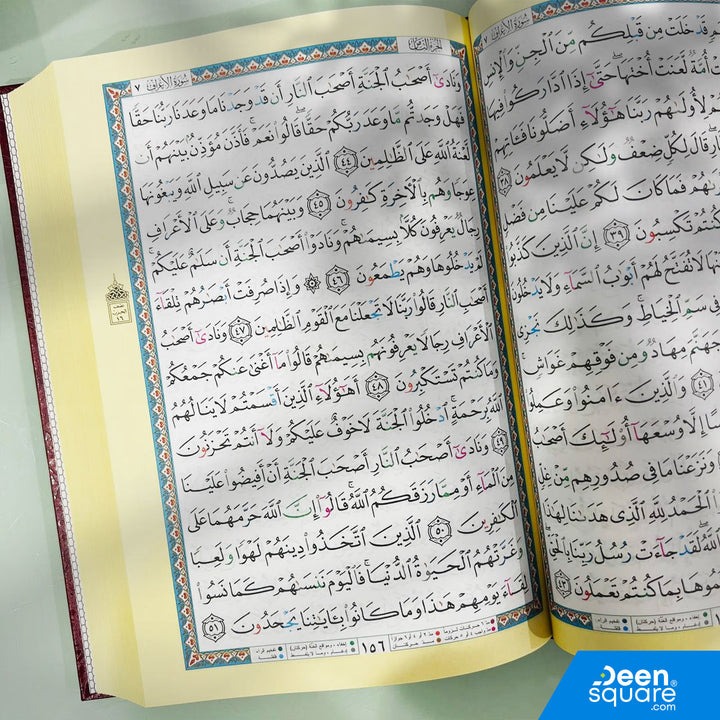 سُورَةُ الأَعْرَافِ ٧
قَدْ خَلَتْ مِن قَبْلِكُم مِّنَ ٱلْجِنِّ وَٱلْإِنسِ
أُمَّةٌ لَّعَنَتْ أُخْتَهَا ۖ حَتَّىٰٓ إِذَا ٱدَّارَكُوا۟ فِيهَا
لِأُولَىٰهُمْ رَبَّنَا هَـٰٓؤُلَآءِ أَضَلُّونَا فَـَٔاتِهِمْ
قَالَ لِكُلٍّ ضِعْفٌ وَلَـٰكِن لَّا تَعْلَمُونَ ٣٨
فَمَا كَانَ لَكُمْ عَلَيْنَا مِن فَضْلٍ
كُنتُمْ تَكْسِبُونَ ٣٩ إِنَّ ٱلَّذِينَ كَذَّبُوا۟
لَا تُفَتَّحُ لَهُمْ أَبْوَٰبُ ٱلسَّمَآءِ وَلَا يَدْخُلُونَ
فِى سَمِّ ٱلْخِيَاطِ ۚ وَكَذَٰلِكَ نَجْزِى
جَهَنَّمَ مِهَادٌ وَمِن فَوْقِهِمْ غَوَاشٍ ۚ
٤١ وَٱلَّذِينَ ءَامَنُوا۟ وَعَمِلُوا۟
إِلَّا وُسْعَهَآ أُو۟لَـٰٓئِكَ أَصْحَـٰبُ
وَنَزَعْنَا مَا فِى صُدُورِهِم مِّنْ غِلٍّ
ٱلْحَمْدُ لِلَّهِ ٱلَّذِى هَدَىٰنَا لِهَـٰذَا
ٱللَّهُ ۖ لَقَدْ جَآءَتْ رُسُلُ رَبِّنَا بِٱلْحَقِّ ۖ
بِمَا كُنتُمْ تَعْمَلُونَ ٤٣
الجُزْءُ الثَّامِنُ
سُورَةُ الأَعْرَافِ ٧
وَنَادَىٰٓ أَصْحَـٰبُ ٱلْجَنَّةِ أَصْحَـٰبَ ٱلنَّارِ أَن قَدْ وَجَدْنَا مَا وَعَدَنَا رَبُّنَا حَقًّا
فَهَلْ وَجَدتُّم مَّا وَعَدَ رَبُّكُمْ حَقًّا ۖ قَالُوا۟ نَعَمْ ۚ فَأَذَّنَ مُؤَذِّنٌۢ بَيْنَهُمْ أَن
لَّعْنَةُ ٱللَّهِ عَلَى ٱلظَّـٰلِمِينَ ٤٤ ٱلَّذِينَ يَصُدُّونَ عَن سَبِيلِ ٱللَّهِ وَيَبْغُونَهَا
عِوَجًا وَهُم بِٱلْـَٔاخِرَةِ كَـٰفِرُونَ ٤٥ وَبَيْنَهُمَا حِجَابٌ ۚ وَعَلَى ٱلْأَعْرَافِ
رِجَالٌ يَعْرِفُونَ كُلًّۢا بِسِيمَىٰهُمْ ۚ وَنَادَوْا۟ أَصْحَـٰبَ ٱلْجَنَّةِ أَن سَلَـٰمٌ عَلَيْكُمْ ۚ
لَمْ يَدْخُلُوهَا وَهُمْ يَطْمَعُونَ ٤٦ ۞ وَإِذَا صُرِفَتْ أَبْصَـٰرُهُمْ تِلْقَآءَ
أَصْحَـٰبِ ٱلنَّارِ قَالُوا۟ رَبَّنَا لَا تَجْعَلْنَا مَعَ ٱلْقَوْمِ ٱلظَّـٰلِمِينَ ٤٧ وَنَادَىٰٓ أَصْحَـٰبُ
ٱلْأَعْرَافِ رِجَالًا يَعْرِفُونَهُم بِسِيمَىٰهُمْ قَالُوا۟ مَآ أَغْنَىٰ عَنكُمْ جَمْعُكُمْ
وَمَا كُنتُمْ تَسْتَكْبِرُونَ ٤٨ أَهَـٰٓؤُلَآءِ ٱلَّذِينَ أَقْسَمْتُمْ لَا يَنَالُهُمُ
ٱللَّهُ بِرَحْمَةٍ ۚ ٱدْخُلُوا۟ ٱلْجَنَّةَ لَا خَوْفٌ عَلَيْكُمْ وَلَآ أَنتُمْ تَحْزَنُونَ
٤٩ وَنَادَىٰٓ أَصْحَـٰبُ ٱلنَّارِ أَصْحَـٰبَ ٱلْجَنَّةِ أَنْ أَفِيضُوا۟ عَلَيْنَا
مِنَ ٱلْمَآءِ أَوْ مِمَّا رَزَقَكُمُ ٱللَّهُ ۚ قَالُوٓا۟ إِنَّ ٱللَّهَ حَرَّمَهُمَا عَلَى
ٱلْكَـٰفِرِينَ ٥٠ ٱلَّذِينَ ٱتَّخَذُوا۟ دِينَهُمْ لَهْوًا وَلَعِبًا
وَغَرَّتْهُمُ ٱلْحَيَوٰةُ ٱلدُّنْيَا ۚ فَٱلْيَوْمَ نَنسَىٰهُمْ كَمَا نَسُوا۟
لِقَآءَ يَوْمِهِمْ هَـٰذَا وَمَا كَانُوا۟ بِـَٔايَـٰتِنَا يَجْحَدُونَ ٥١
١٥٦
Deen
square
.com